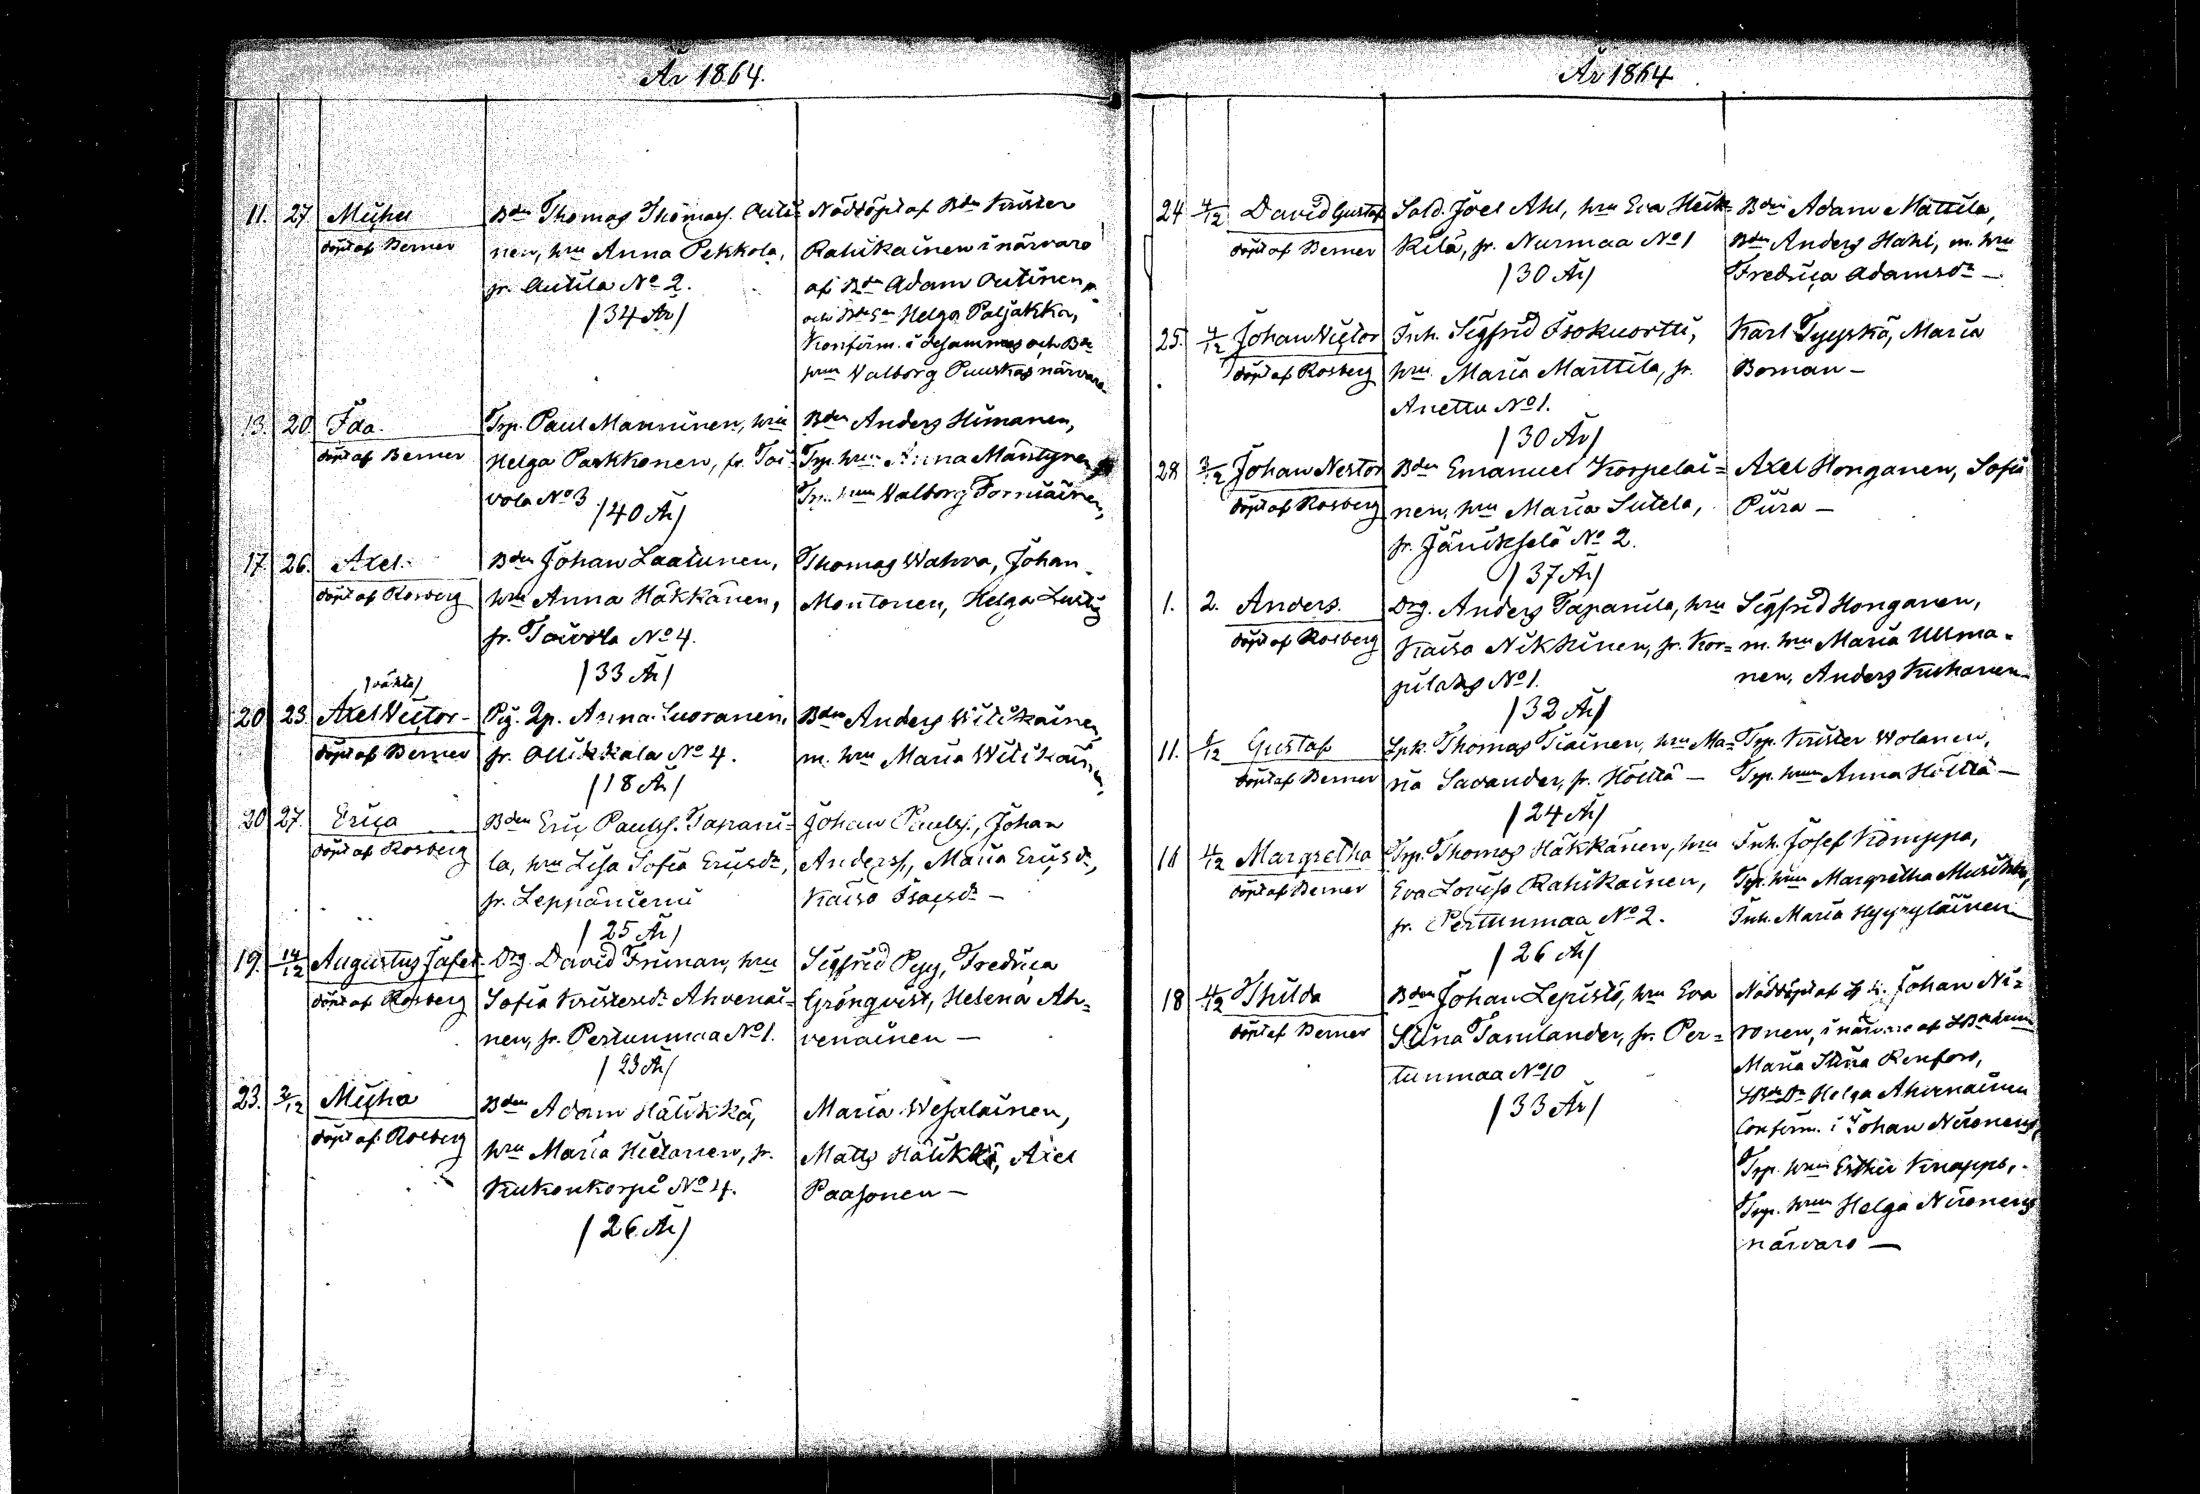 År 1864.
11. 27 Michel
döpt af Berner
Bdn Thomas Thomass. Auti-
nen, hru Anna Pekkola,
fr. Autila No 2.
/34 År/
Nöddöpt af Bdn Krister
Rahikainen i närvaro
af Bdn Adam Autinen
och Helga Paljakka,
Konfirm. i desammas och Bde
hrun Valborg Puuskas närvaro
13. 20. Ida.
döpt af Berner
Trp. Paul Manninen, hru
Helga Parkkonen, fr. Toi-
vola No 3
/40 År/
Bdn Anders Himanen,
Trp. hrun Anna Mäntynen
hrun Valborg Torniainen,
17. 26. Axel.
döpt af Rosberg
Bdn Johan Laatunen,
hru Anna Häkkänen,
fr. Toivola No 4.
/33 År/
Thomas Wahva, Johan
Montonen, Helga Lustig
/oäkta/
20 23. Axel Victor
döpt af Berner
Pig. Qp. Anna Suoranen,
fr. Ollikkala No 4.
/18 År/
Bdn Anders Wilikainen,
m. hru Maria Wilikainen,
20 27. Erica
döpt af Rosberg
Bden Eric Paulss. Tapani-
la, hru Lisa Sofia Ericsdr,
fr. Leppäniemi
/25 År/
Johan Paulss., Johan
Anderss., Maria Ericsdr,
Kaisa Isacsdr –
19. 14/12 Augustus Jafet
döpt af Rosberg
Drg. David Friman, hru
Sofia Kristersdr Ahvenai-
nen, fr. Pertunmaa No 1.
/23 År/
Sigfrid Pyy, Fredrica
Grönqvist, Helena Ah-
venainen –
23. 3/12 Micha
döpt af Rosberg
Bden Adam Hälikkä,
hru Maria Hietanen, fr.
Kukonkorpi No 4.
/26 År/
Maria Wesalainen,
Matts Hälikkä, Axel
Paasonen –
År 1864
24 4/12 David Gustaf
döpt af Berner
Sold. Joel Ahl, hru Eva Heik-
kilä, fr. Nurmaa No 1
/30 År/
Bdn Adam Mattila,
Bdn Anders Hahl, m. hru
Fredrica Adamsdr –
25. 4/12 Johan Victor
döpt af Rosberg
Inh. Sigfrid Isokuortti,
hru Maria Marttila, fr.
Anettu No 1.
/30 År/
Karl Tyyskä, Maria
Boman –
28 3/12 Johan Nestor
döpt af Rosberg
Bden Emanuel Korpelai-
nen, hru Maria Sutela,
fr. Jänikselä No 2.
/37 År/
Axel Honganen, Sofia
Piira –
1. 2. Anders.
döpt af Rosberg
Drg. Anders Tapanila, hru
Kaisa Nikkinen, fr. Kor-
pilaks No 1.
/32 År/
Sigfrid Honganen,
m. hru Maria Ullma-
nen, Anders Kuhanen
11. Gustaf
döpt af Berner
Spk. Thomas Tiainen, hru Ma-
ria Savander, fr. Hölttä –
/24 År/
Trp. Krister Wolanen,
Trp. hrun Anna Hölttä –
11 Margretha
döpt af Berner
Trp. Thomas Häkkänen, hru
Eva Lovisa Rahikainen,
fr. Pertunmaa No 2.
/26 År/
Inh. Josef Kämppa,
Trp. hrun Margretha
Inh. Maria Hyyryläinen
18 Thilda
döpt af Berner
Bden Johan Lepistö, hru Eva
Stina Tamlander, fr. Per-
tunmaa No 10
/33 År/
Nöddöpt af Johan Ni-
ronen, i närvaro af
Maria Stina Renfors,
Helga Ahvenainen
Confirm. i Johan Nironens,
Trp. hrun Esther Knapps,
Trp. hrun Helga Nironens
närvaro –